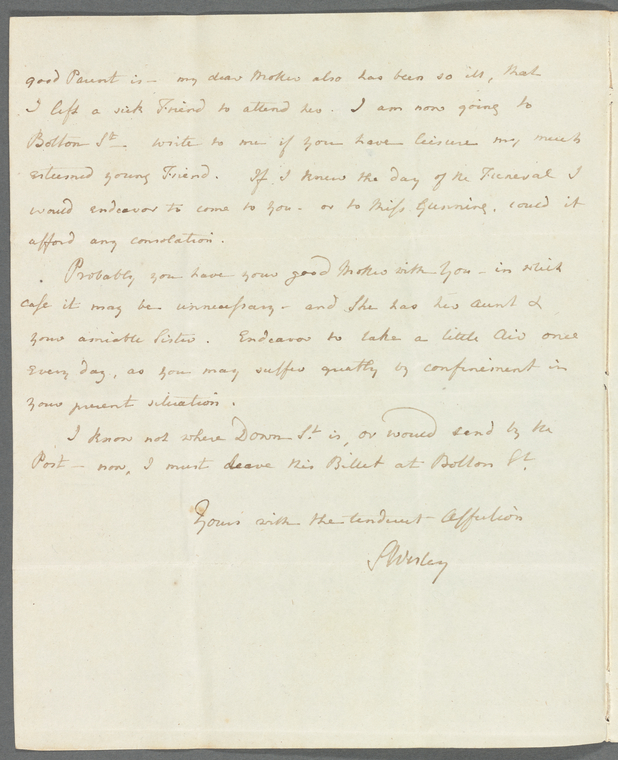 good Parent is – my dear Mother also has been so ill, that
I left a sick Friend to attend her. I am now going to
Bolton St. – write to me if you have leisure my much
esteemed young Friend. If I knew the day of the Funeral I
would endeavor to come to you – or to Miss Gunning, could it
afford any consolation.
Probably you have your good Mother with You – in which
case it may be unnecessary – and She has her Aunt &
your amiable Sister. Endeavor to take a little Air once
Every day, as you may suffer greatly by confinement in
your present situation.
I know not where Down St. is, or would send by the
Post – now, I must leave this Billet at Bolton St.
Yours with the tenderest Affection
S Wesley